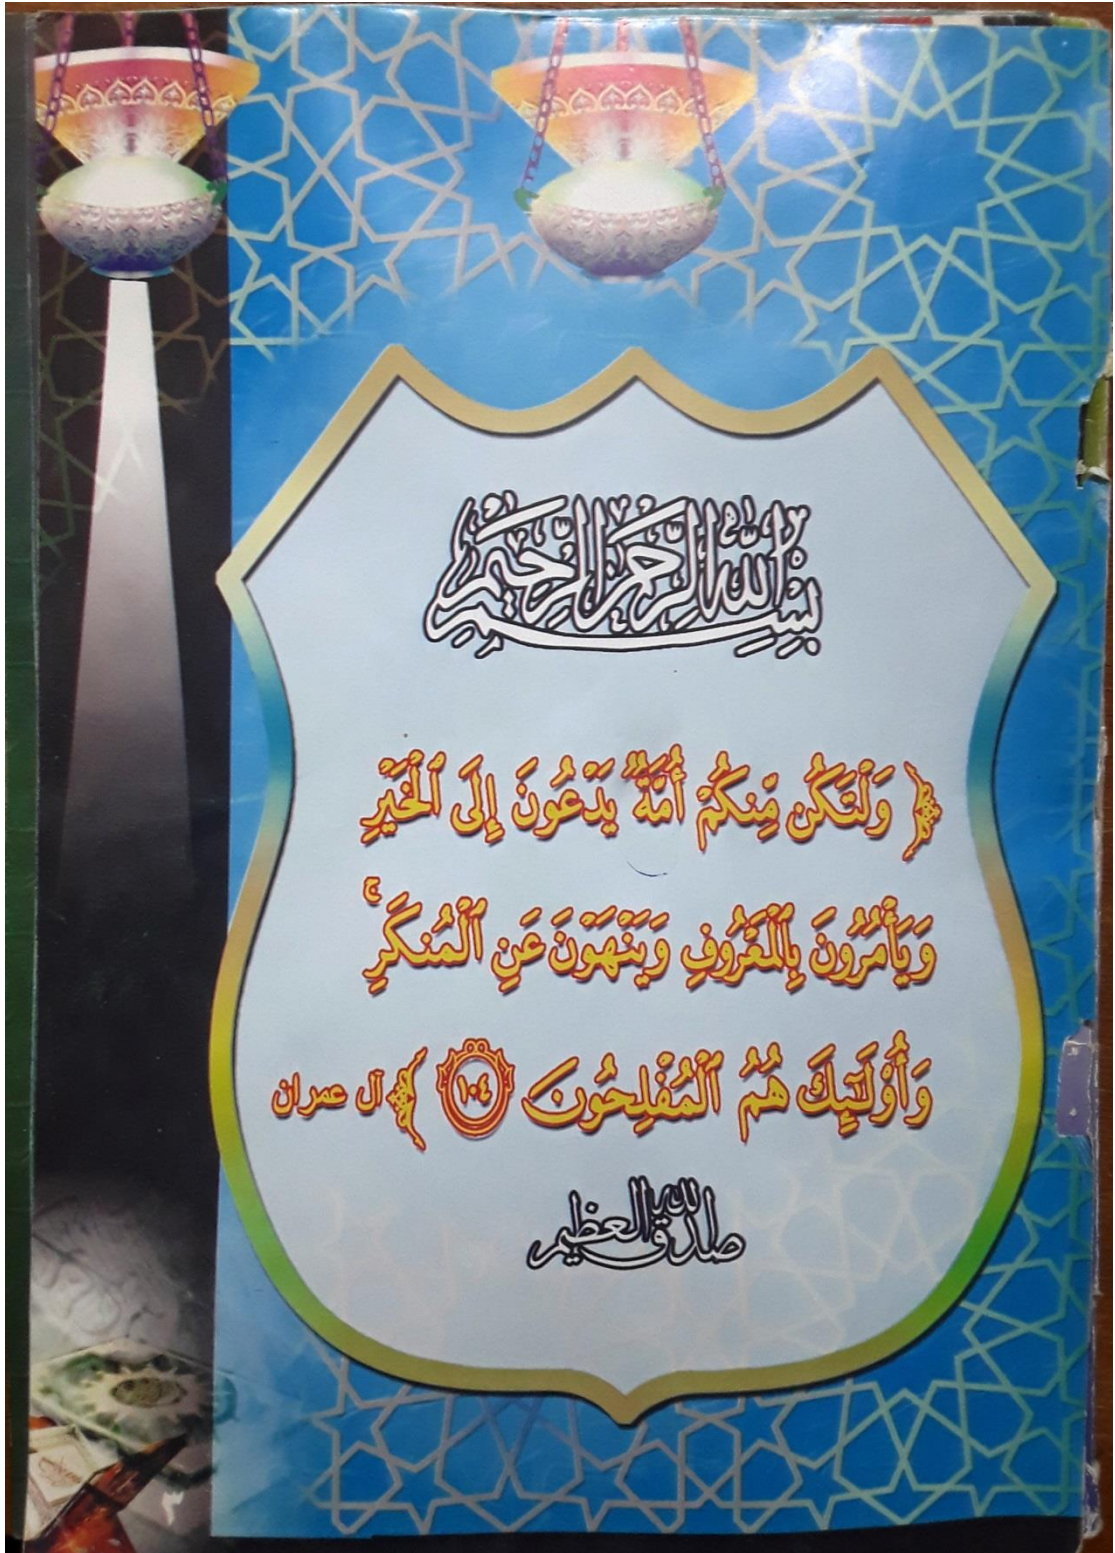 بِسْمِ اللَّهِ الرَّحْمَنِ الرَّحِيمِ
﴿ وَلْتَكُن مِّنكُمْ أُمَّةٌ يَدْعُونَ إِلَى ٱلْخَيْرِ
وَيَأْمُرُونَ بِٱلْمَعْرُوفِ وَيَنْهَوْنَ عَنِ ٱلْمُنكَرِ ۚ
وَأُوْلَـٰٓئِكَ هُمُ ٱلْمُفْلِحُونَ ١٠٤ ﴾ آل عمران
صدق الله العظيم